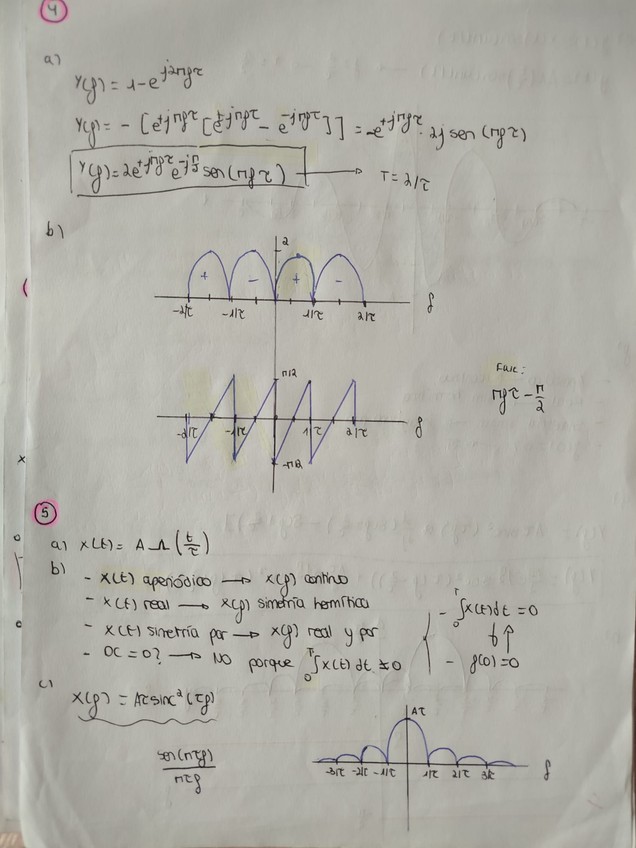 4
a)
Y(f) = 1 - e^{j2πfτ}
Y(f) = - [e^{+jπfτ} [e^{+jπfτ} - e^{-jπfτ}]] = -e^{+jπfτ} · 2j sen(πfτ)
Y(f) = 2e^{+jπfτ} e^{-jπ/2} sen(πfτ) → T = 2/τ
b)
2
+ - + -
-2/τ -1/τ 1/τ 2/τ f
π/2
-2/τ -1/τ 1/τ 2/τ f
-π/2
Fase:
πfτ - π/2
5
a) x(t) = A Λ (t/τ)
b)
- x(t) aperiódico → x(f) continuo
- x(t) real → x(f) simetría hermítica
- x(t) simetría par → x(f) real y par
- DC = 0? → NO porque ∫₀ᵀ x(t) dt ≠ 0
- ∫₀ᵀ x(t) dt = 0
- f(0) = 0
c)
X(f) = Aτ sinc²(τf)
sen(πτf)/πτf
Aτ
-3/τ -2/τ -1/τ 1/τ 2/τ 3/τ f